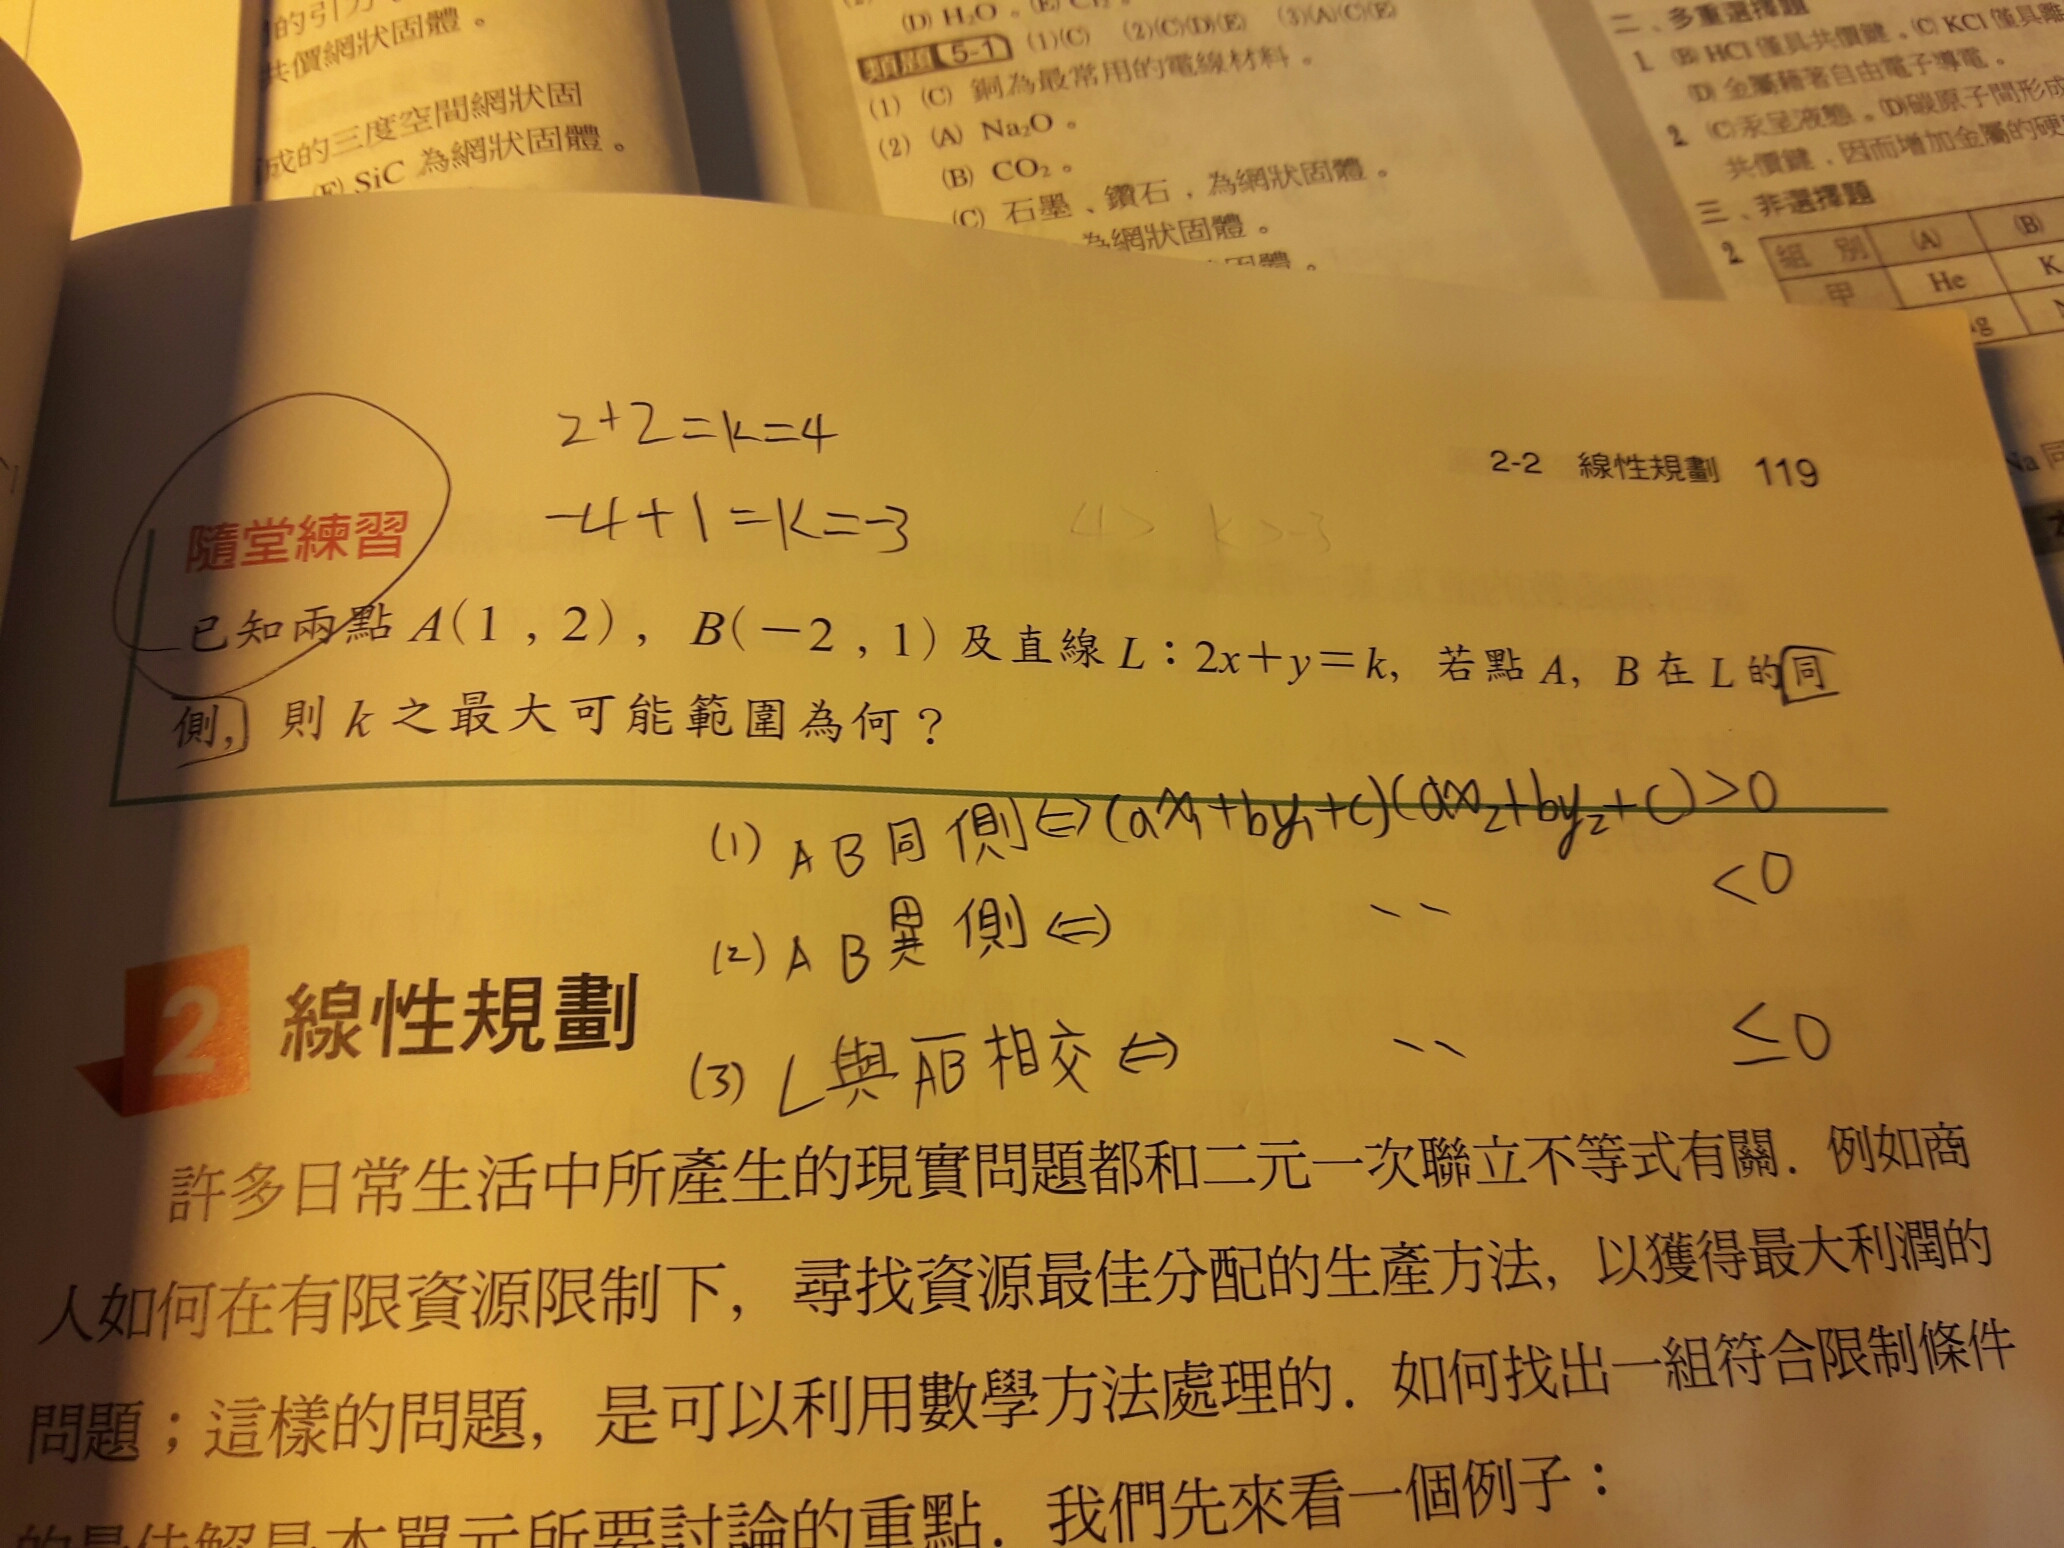 共價網狀固體。
成的三度空間網狀固
SiC 為網狀固體。
(D) H₂O。(E) Cl₂。
類題 5-1 (1)(C) (2)(C)(D)(E) (3)(A)(C)(E)
(1) (C) 銅為最常用的電線材料。
(2) (A) Na₂O。
(B) CO₂。
(C) 石墨、鑽石,為網狀固體。
為網狀固體。
固體。
二、多重選擇題
1. (B) HCl 僅具共價鍵。(C) KCl 僅具離
(D) 金屬藉著自由電子導電。
2. (C) 汞呈液態。(D) 碳原子間形成
共價鍵,因而增加金屬的硬
三、非選擇題
2. 組別 (A) (B)
甲 He K
2+2=k=4
-4+1=k=-3
4> k>-3
2-2 線性規劃 119
隨堂練習
已知兩點 A(1,2), B(-2,1) 及直線 L:2x+y=k, 若點 A, B 在 L 的同
側, 則 k 之最大可能範圍為何?
(1) AB同側⇔(ax₁+by₁+c)(ax₂+by₂+c)>0
(2) AB異側⇔ 〃 <0
(3) L與AB̅相交⇔ 〃 ≤0
2 線性規劃
許多日常生活中所產生的現實問題都和二元一次聯立不等式有關. 例如商
人如何在有限資源限制下, 尋找資源最佳分配的生產方法, 以獲得最大利潤的
問題;這樣的問題, 是可以利用數學方法處理的. 如何找出一組符合限制條件
的最佳解是本單元所要討論的重點. 我們先來看一個例子: